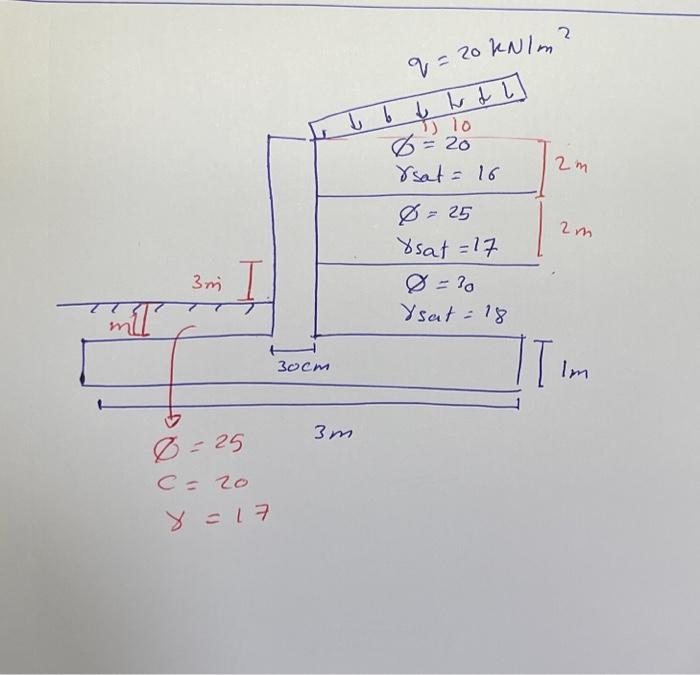 q = 20 kN/m²
1) 10
Ø = 20
γsat = 16
2m
Ø = 25
γsat = 17
2m
3m
Ø = 30
γsat = 18
m
30cm
1m
3m
Ø = 25
C = 20
γ = 17